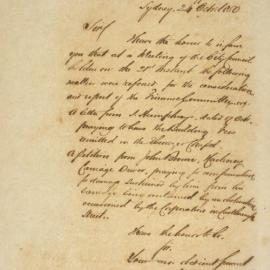 Sydney, 24 Octr 1870
Sir
I have the honor to inform
you that at a Meeting of the City Council
holden on the 21st Instant the following
matters were referred for the consideration
and report of the Finance Committee viz
A letter from J. Humphray, dated 17 Octr
praying to have the building Fees
remitted in the
A petition from John Bourne, Hackney
Carriage Owner, praying for compensation
for damage sustained by him from his
Carriage being overturned by an obstruction
occasioned by the Corporation in Castlereagh
Street.
I have the honor to be
Sir
Your most obedient servant